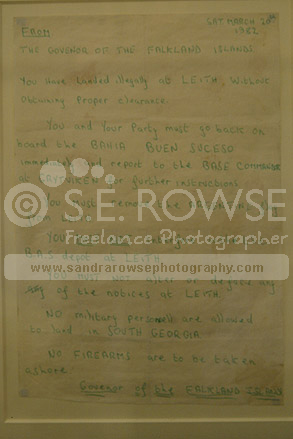 SAT MARCH 20th
FROM 1982
THE GOVENOR OF THE FALKLAND ISLANDS
You Have landed illegally at LEITH, Without
Obtaining Proper clearance.
You and Your Party must go back on
board the BAHIA BUEN SUCESO
immediately and report to the BASE COMMANDER
at GRYTVIKEN for further instructions
You Must remove the
from
S.E. ROWSE
Freelance Photographer
B.A.S depot at LEITH.
www.sandrarowsephotography.com
You must not alter or deface any
of the notices at LEITH
NO military personell are allowed
to land in SOUTH GEORGIA
NO FIREARMS are to be taken
ashore
Govenor of the FALKLAND ISLANDS